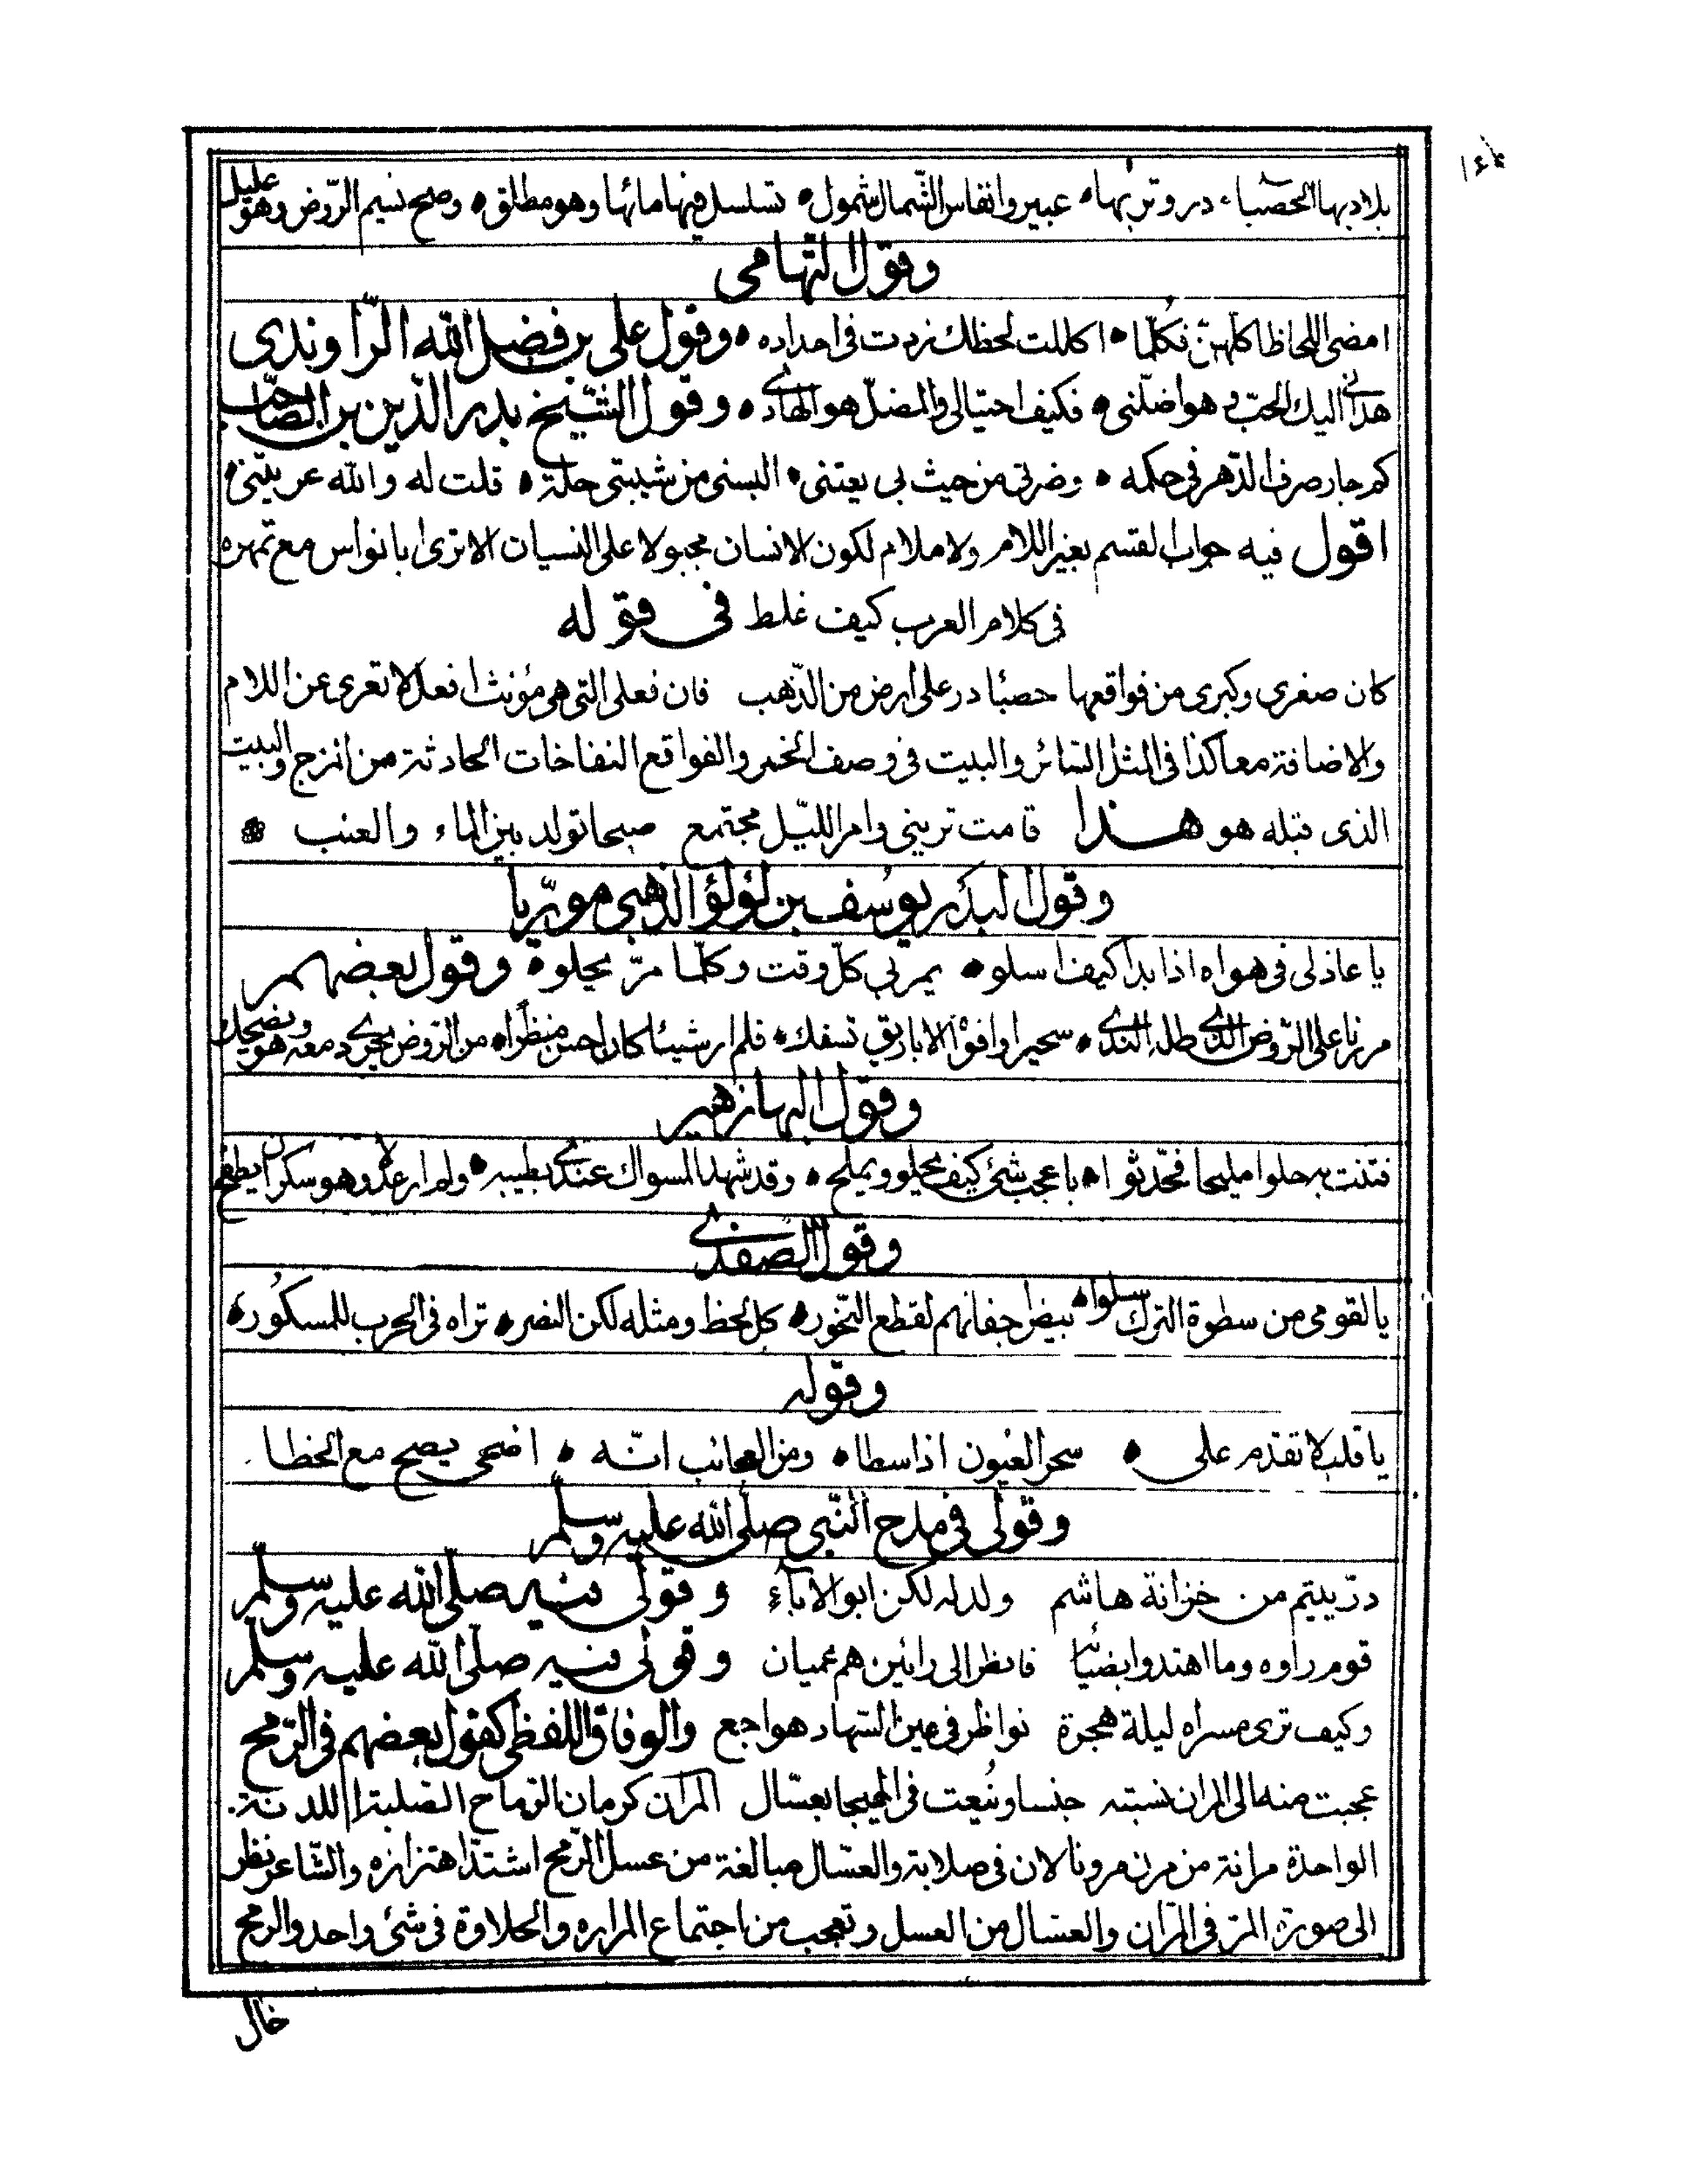 ١٤٤
بلاد بها الحصباء در وتربها عبير وانفاس الشمال شمول تسلسل فيها مائها وهو مطلق وصح نسيم الروض وهو عليل
وقول التهامى
امضى اللحاظ اكلهن فكلما اكللت لحظك زدت فى احداده وقول على بن فضل الله الراوندى
هدانى اليك الحب وهو اضلنى فكيف احتيالى والمضل هو الهادى وقول الشيخ بدر الدين بن الصاحب
كم جار صرف الدهر فى حكمه وضرنى من حيث بى يعتنى البسنى من شيبتى حلة قلت له والله عريتنى
اقول فيه جواب القسم بغير اللام ولا ملام لكون الانسان مجبولا على النسيان الا ترى ابا نواس مع تمهره
فى كلام العرب كيف غلط فى قوله
كان صغرى وكبرى من فواقعها حصباء در على ارض من الذهب فان فعلى التى هى مؤنث افعل لا تعرى عن اللام
والاضافة معا كذا فى المثل السائر والبيت فى وصف الخمر والفواقع النفاخات الحادثة من المزج والبيت
الذى قبله هو هذا قامت ترينى وامر الليل مجتمع صبحا تولد بين الماء والعنب
وقول البدر يوسف بن لؤلؤ الذهبى موريا
يا عاذلى فى هواه اذا بدا كيف اسلو يمر بى كل وقت وكلما مر يحلو وقول بعضهم
مررنا على الروض الذى طله الندى سحيرا وافواه الاباريق تسفك فلم ار شيئا كان احسن منظرا من الروض يجرى دمعه وهو يضحك
وقول البها زهير
فتنت به حلوا مليحا فحدثوا باعجب شئ كيف يحلو ويملح وقد شهد المسواك عندى بطيبه ولم ار عدلا وهو سكران يطفح
وقول الصفدى
يا لقومى من سطوة الترك سلوا بيض اجفانهم لقطع النحور كل لحظ ومثله لكن النصر تراه فى الحرب للمسكور
وقوله
يا قلب لا تقدم على سحر العيون اذا سطا ومن العجائب انه اضحى يصح مع الخطا
وقولى فى مدح النبى صلى الله عليه وسلم
در يتيم من خزانة هاشم ولد له لكن ابو الاباء وقولى فيه صلى الله عليه وسلم
قوم راوه وما اهتدوا بضيائه فانظر الى رائين هم عميان وقولى فيه صلى الله عليه وسلم
وكيف ترى مسراه ليلة هجرة نواظر فى عين السهاد هواجع والوفاق اللفظى كقول بعضهم فى الرمح
عجبت منه الى المران نسبته جنسا ونعت فى الهيجا بعسال المران كرمان الرماح الصلبة اللدنة
الواحدة مرانة من مرن مرونا لان فى صلابة والعسال مبالغة من عسل الرمح اشتد اهتزازه والشاعر نظر
الى صورة المر فى المران والعسال من العسل وتعجب من اجتماع المراره والحلاوة فى شئ واحد والرمح
خال